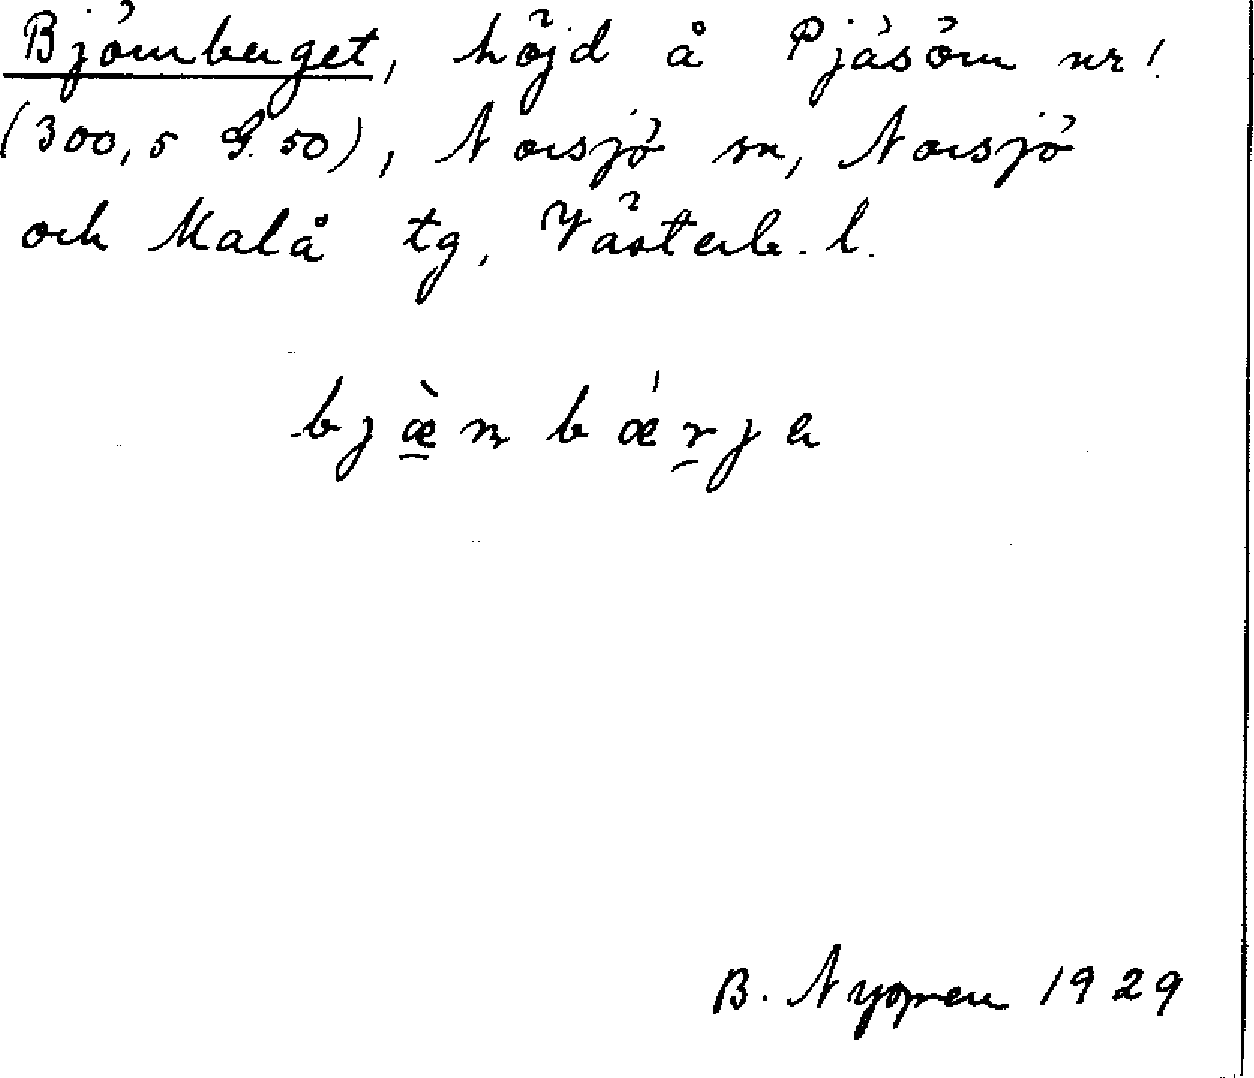 Björnberget, höjd å Pjäsörn nr 1
(300,5 G. 50), Norsjö sn, Norsjö
och Malå tg, Västerb. l.
bjæ̀n bǽrja
B. Nygren 1929